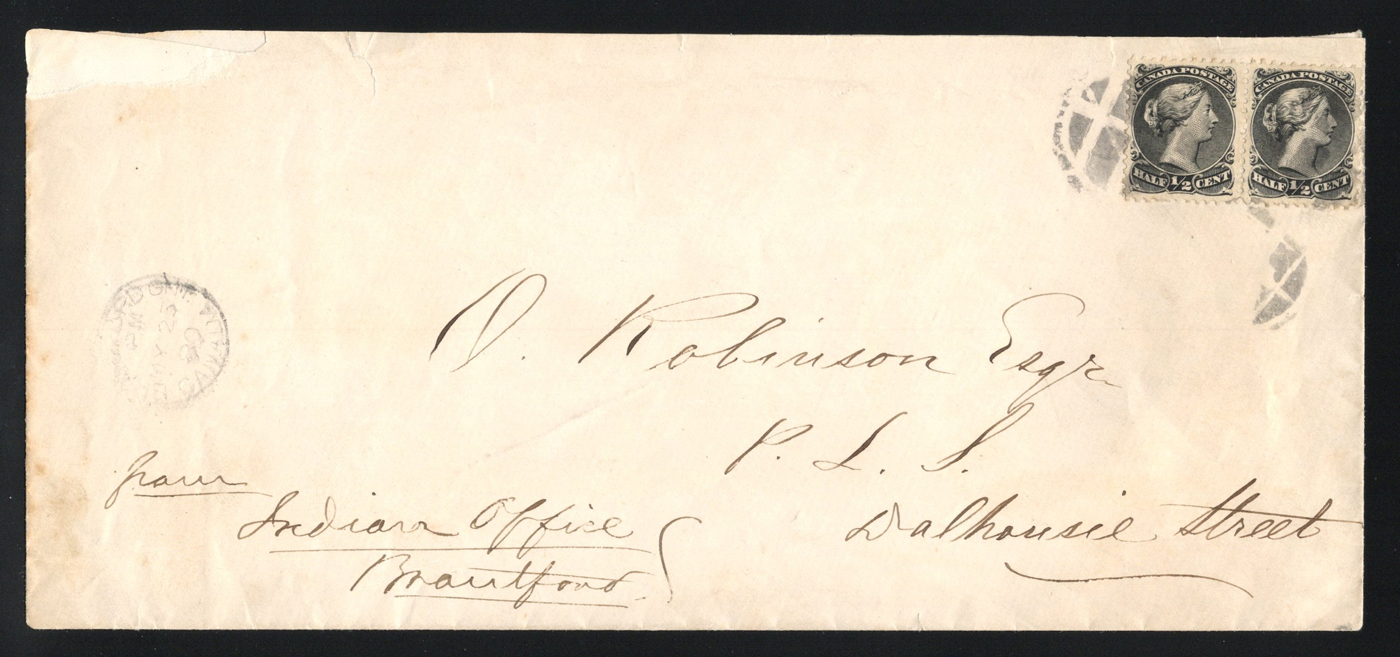 CANADA POSTAGE
HALF 1/2 CENT
CANADA POSTAGE
HALF 1/2 CENT
O. Robinson Esqr
P. L. S.
Dalhousie Street
from
Indian Office
Brantford